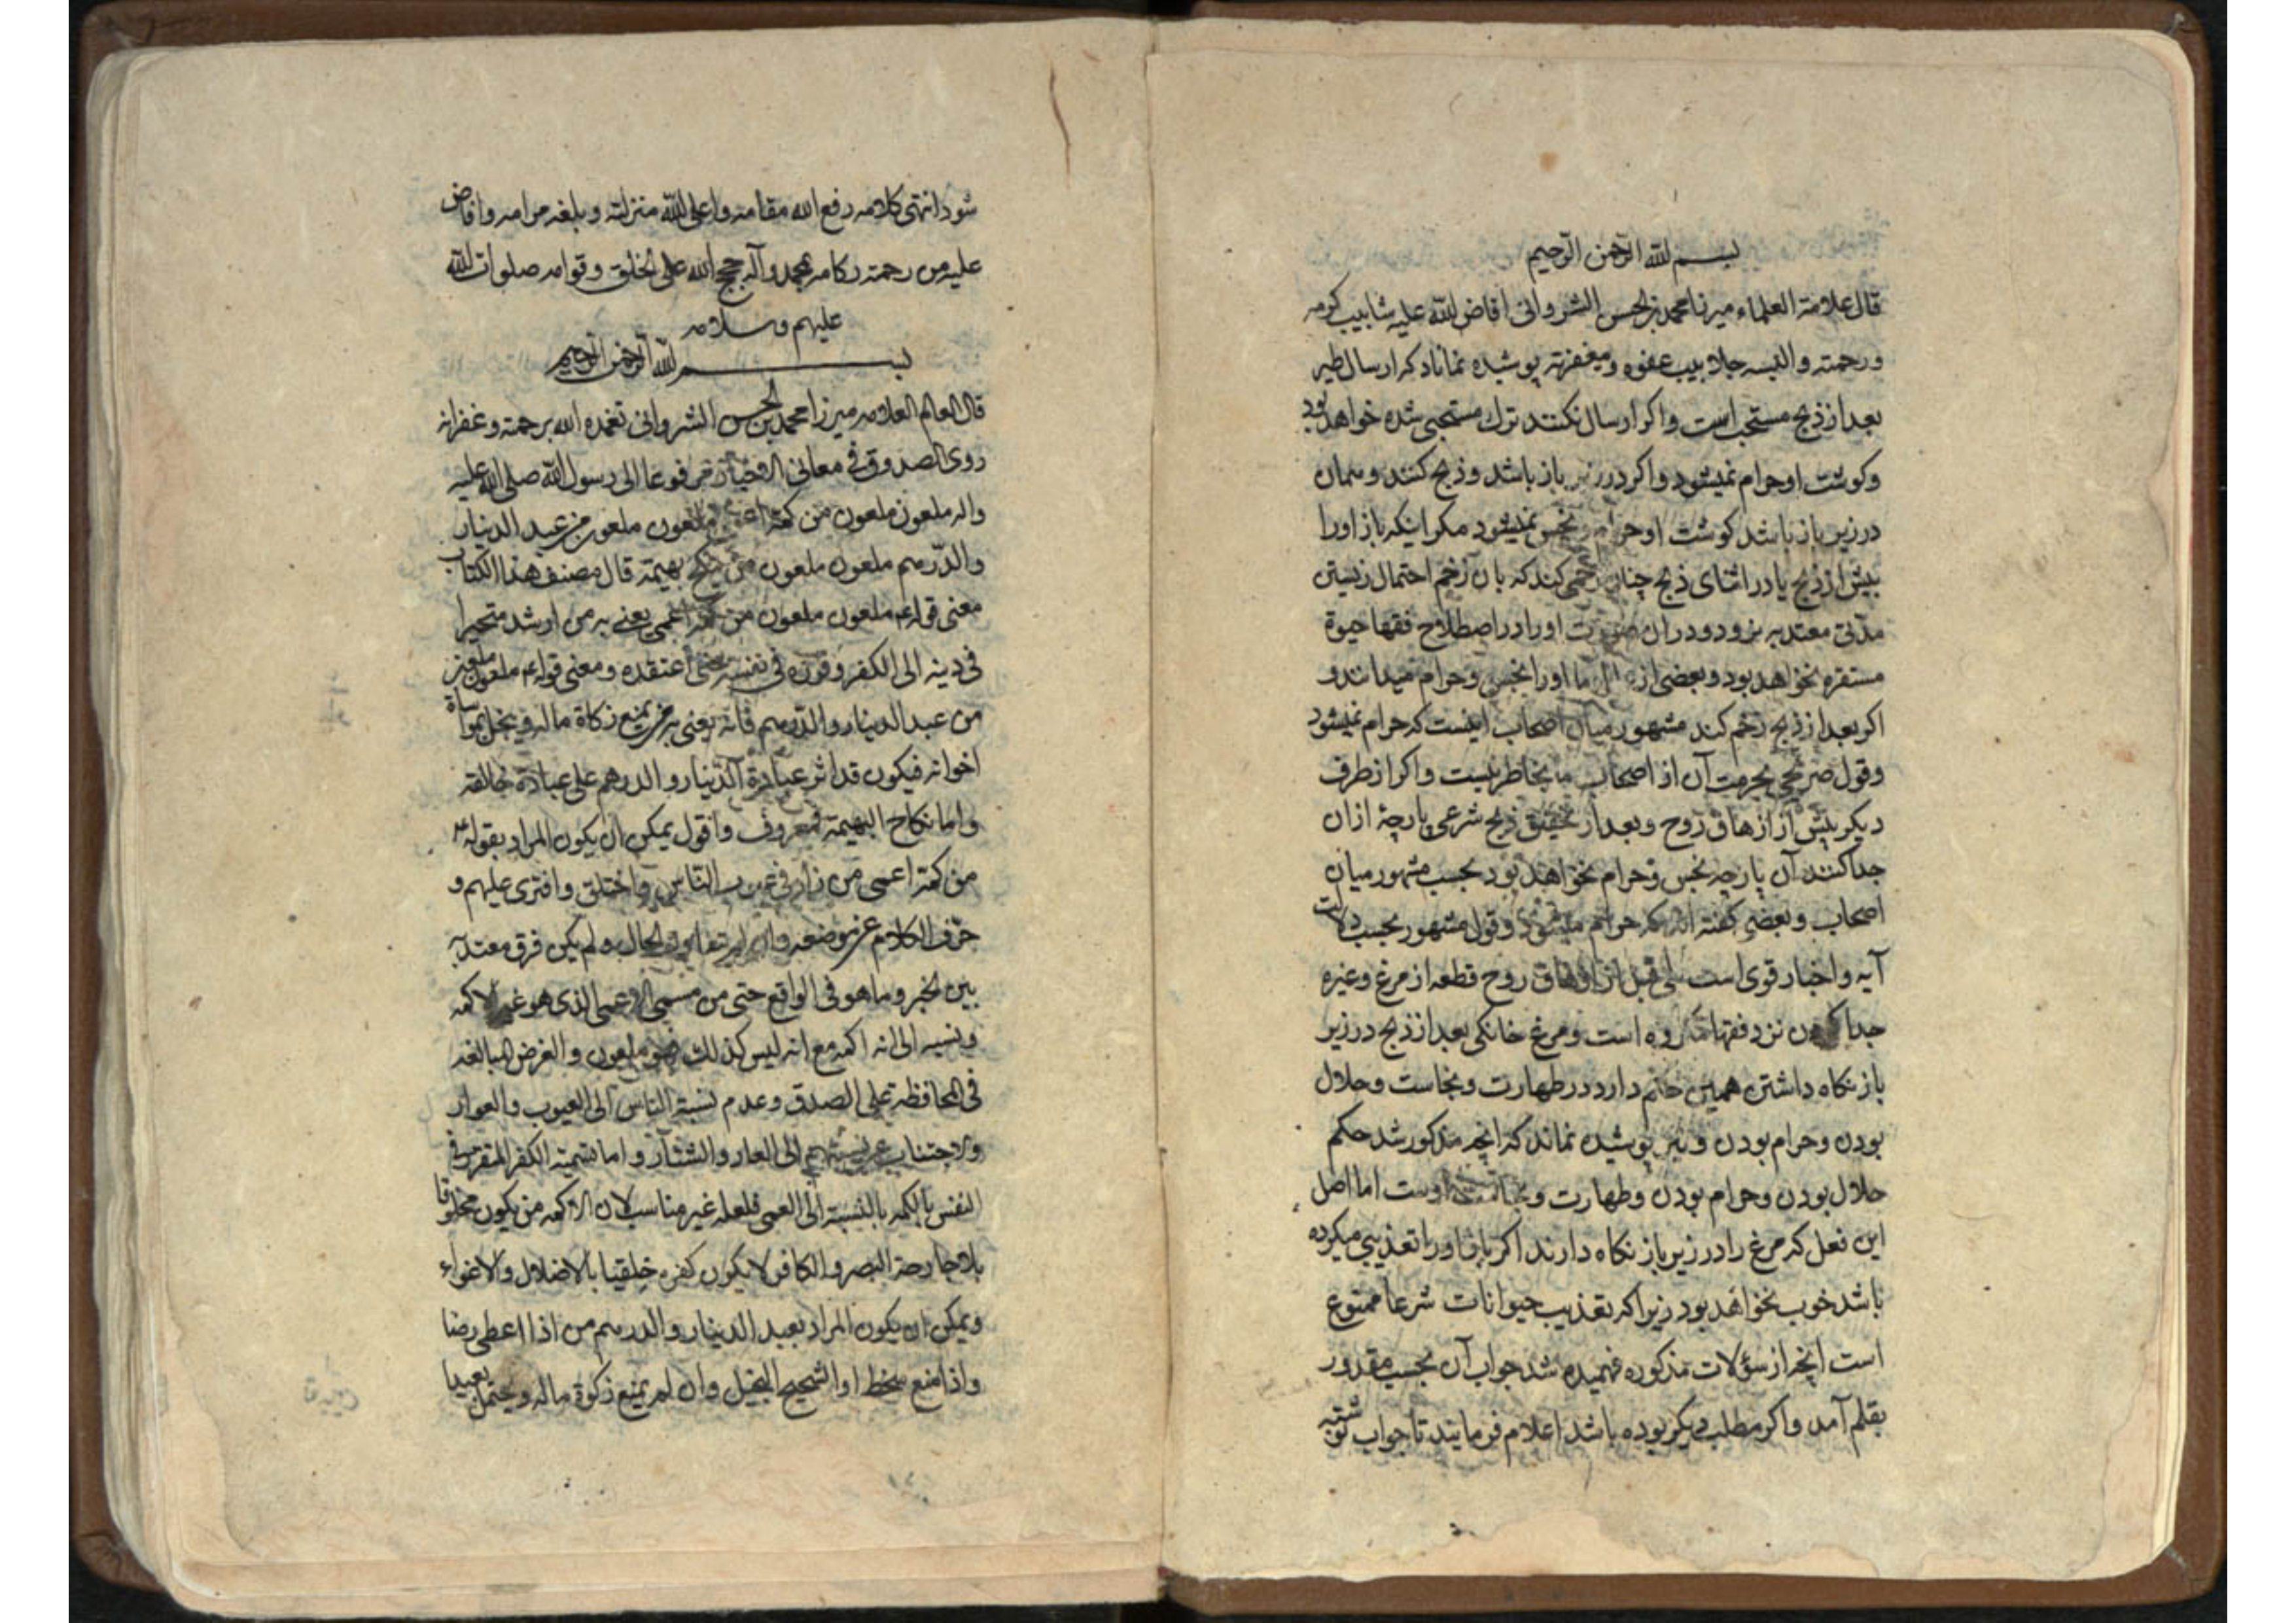 بسم الله الرحمن الرحيم
قال علامة العلماء ميرزا محمد بن الحسن الشرواني افاض الله عليه شابيب كرمه
ورحمته والبسه جلابيب عفوه ومغفرته پوشيده نماناد كه ارسال طير
بعد از ذبح مستحب است واكر ارسال نكنند ترك مستحبى شده خواهد بود
وكوشت او حرام نميشود واكر در زير باز باشد وذبح كنند وهمان
در زير باز باشد كوشت او حرام ونجس نميشود مكر اينكه باز اورا
پيش از ذبح يا در اثناى ذبح چنان زخمى كند كه بان زخم احتمال زيستن
مدتى معتد به نرود ودران صورت اورا در اصطلاح فقها حيوة
مستقره نخواهد بود وبعضى از ما اورا نجس وحرام ميدانند و
اكر بعد از ذبح زخم كند مشهور ميان اصحاب اينست كه حرام نميشود
وقول صريحى بحرمت آن از اصحاب ما بخاطر نيست واكر از طرف
ديكر پيش از ازهاق روح وبعد از تحقق ذبح شرعى پارچۀ ازان
جدا كنند آن پارچه نجس وحرام نخواهد بود بحسب مشهور ميان
اصحاب وبعضى كفته اند كه حرام ميشود وقول مشهور بحسب دلالت
آيه واخبار قوى است بلى قبل از ازهاق روح قطعه از مرغ وغيره
جدا كردن نزد فقها مكروه است ومرغ خانكى بعد از ذبح در زير
باز نكاه داشتن همين حكم دارد در طهارت ونجاست وحلال
بودن وحرام بودن ونيز پوشيده نماند كه انچه مذكور شد حكم
حلال بودن وحرام بودن وطهارت ونجاست اوست اما اصل
اين فعل كه مرغ را در زير باز نكاه دارند اكر باز اورا تعذيبى ميكرده
باشد خوب نخواهد بود زيرا كه تعذيب حيوانات شرعا ممنوع
است انچه از سؤالات مذكوره فهميده شد جواب آن بحسب مقدور
بقلم آمد واكر مطلب ديكر بوده باشد اعلام فرمايند تا جواب نوشته
شود انتهى كلامه رفع الله مقامه واعلى الله منزلته وبلغه مرامه وافاض
عليه من رحمته ركامه بمحمد وآله حجج الله على الخلق وقوامه صلوات الله
عليهم وسلامه
بسم الله الرحمن الرحيم
قال العالم العلامه ميرزا محمد بن الحسن الشرواني تغمده الله برحمته وغفرانه
روى الصدوق في معاني الاخبار مرفوعا الى رسول الله صلى الله عليه
واله ملعون ملعون من كمه اعمى ملعون ملعون من عبد الدينار
والدرهم ملعون ملعون من نكح بهيمة قال مصنف هذا الكتاب
معنى قوله ع ملعون ملعون من كمه اعمى يعنى به من ارشد متحيرا
في دينه الى الكفر وقرره في نفسه حتى اعتقده ومعنى قوله ع ملعون ملعون
من عبد الدينار والدرهم فانه يعنى به من يمنع زكاة ماله ويبخل بمواساة
اخوانه فيكون قد اثر عبادة الدينار والدرهم على عبادة خالقه
واما نكاح البهيمة فمعروف واقول يمكن ان يكون المراد بقوله ع
من كمه اعمى من زاد في عيوب الناس واختلق وافترى عليهم و
حرف الكلام عن موضعه وان لم يتفاوت الحال ولم يكن فرق معتد به
بين الخبر وما هو في الواقع حتى من سمى الاعمى الذى هو غير الاكمه
ونسبه الى انه اكمه مع انه ليس كذلك فهو ملعون والغرض المبالغه
في المحافظة على الصدق وعدم نسبة الناس الى العيوب والعوار
والاجتناب عن نسبتهم الى العار والشنار واما تسمية الكفر المتقرر في
النفس بالكمه بالنسبة الى العمى فلعله غير مناسب لان الاكمه من يكون مخلوقا
بلا جارحة البصر والكافر لا يكون كفره خلقيا بالاضلال والاغواء
ويمكن ان يكون المراد بعبد الدينار والدرهم من اذا اعطى رضا
واذا منع سخط او الشحيح البخيل وان لم يمنع زكوة ماله ويحتمل بعيدا